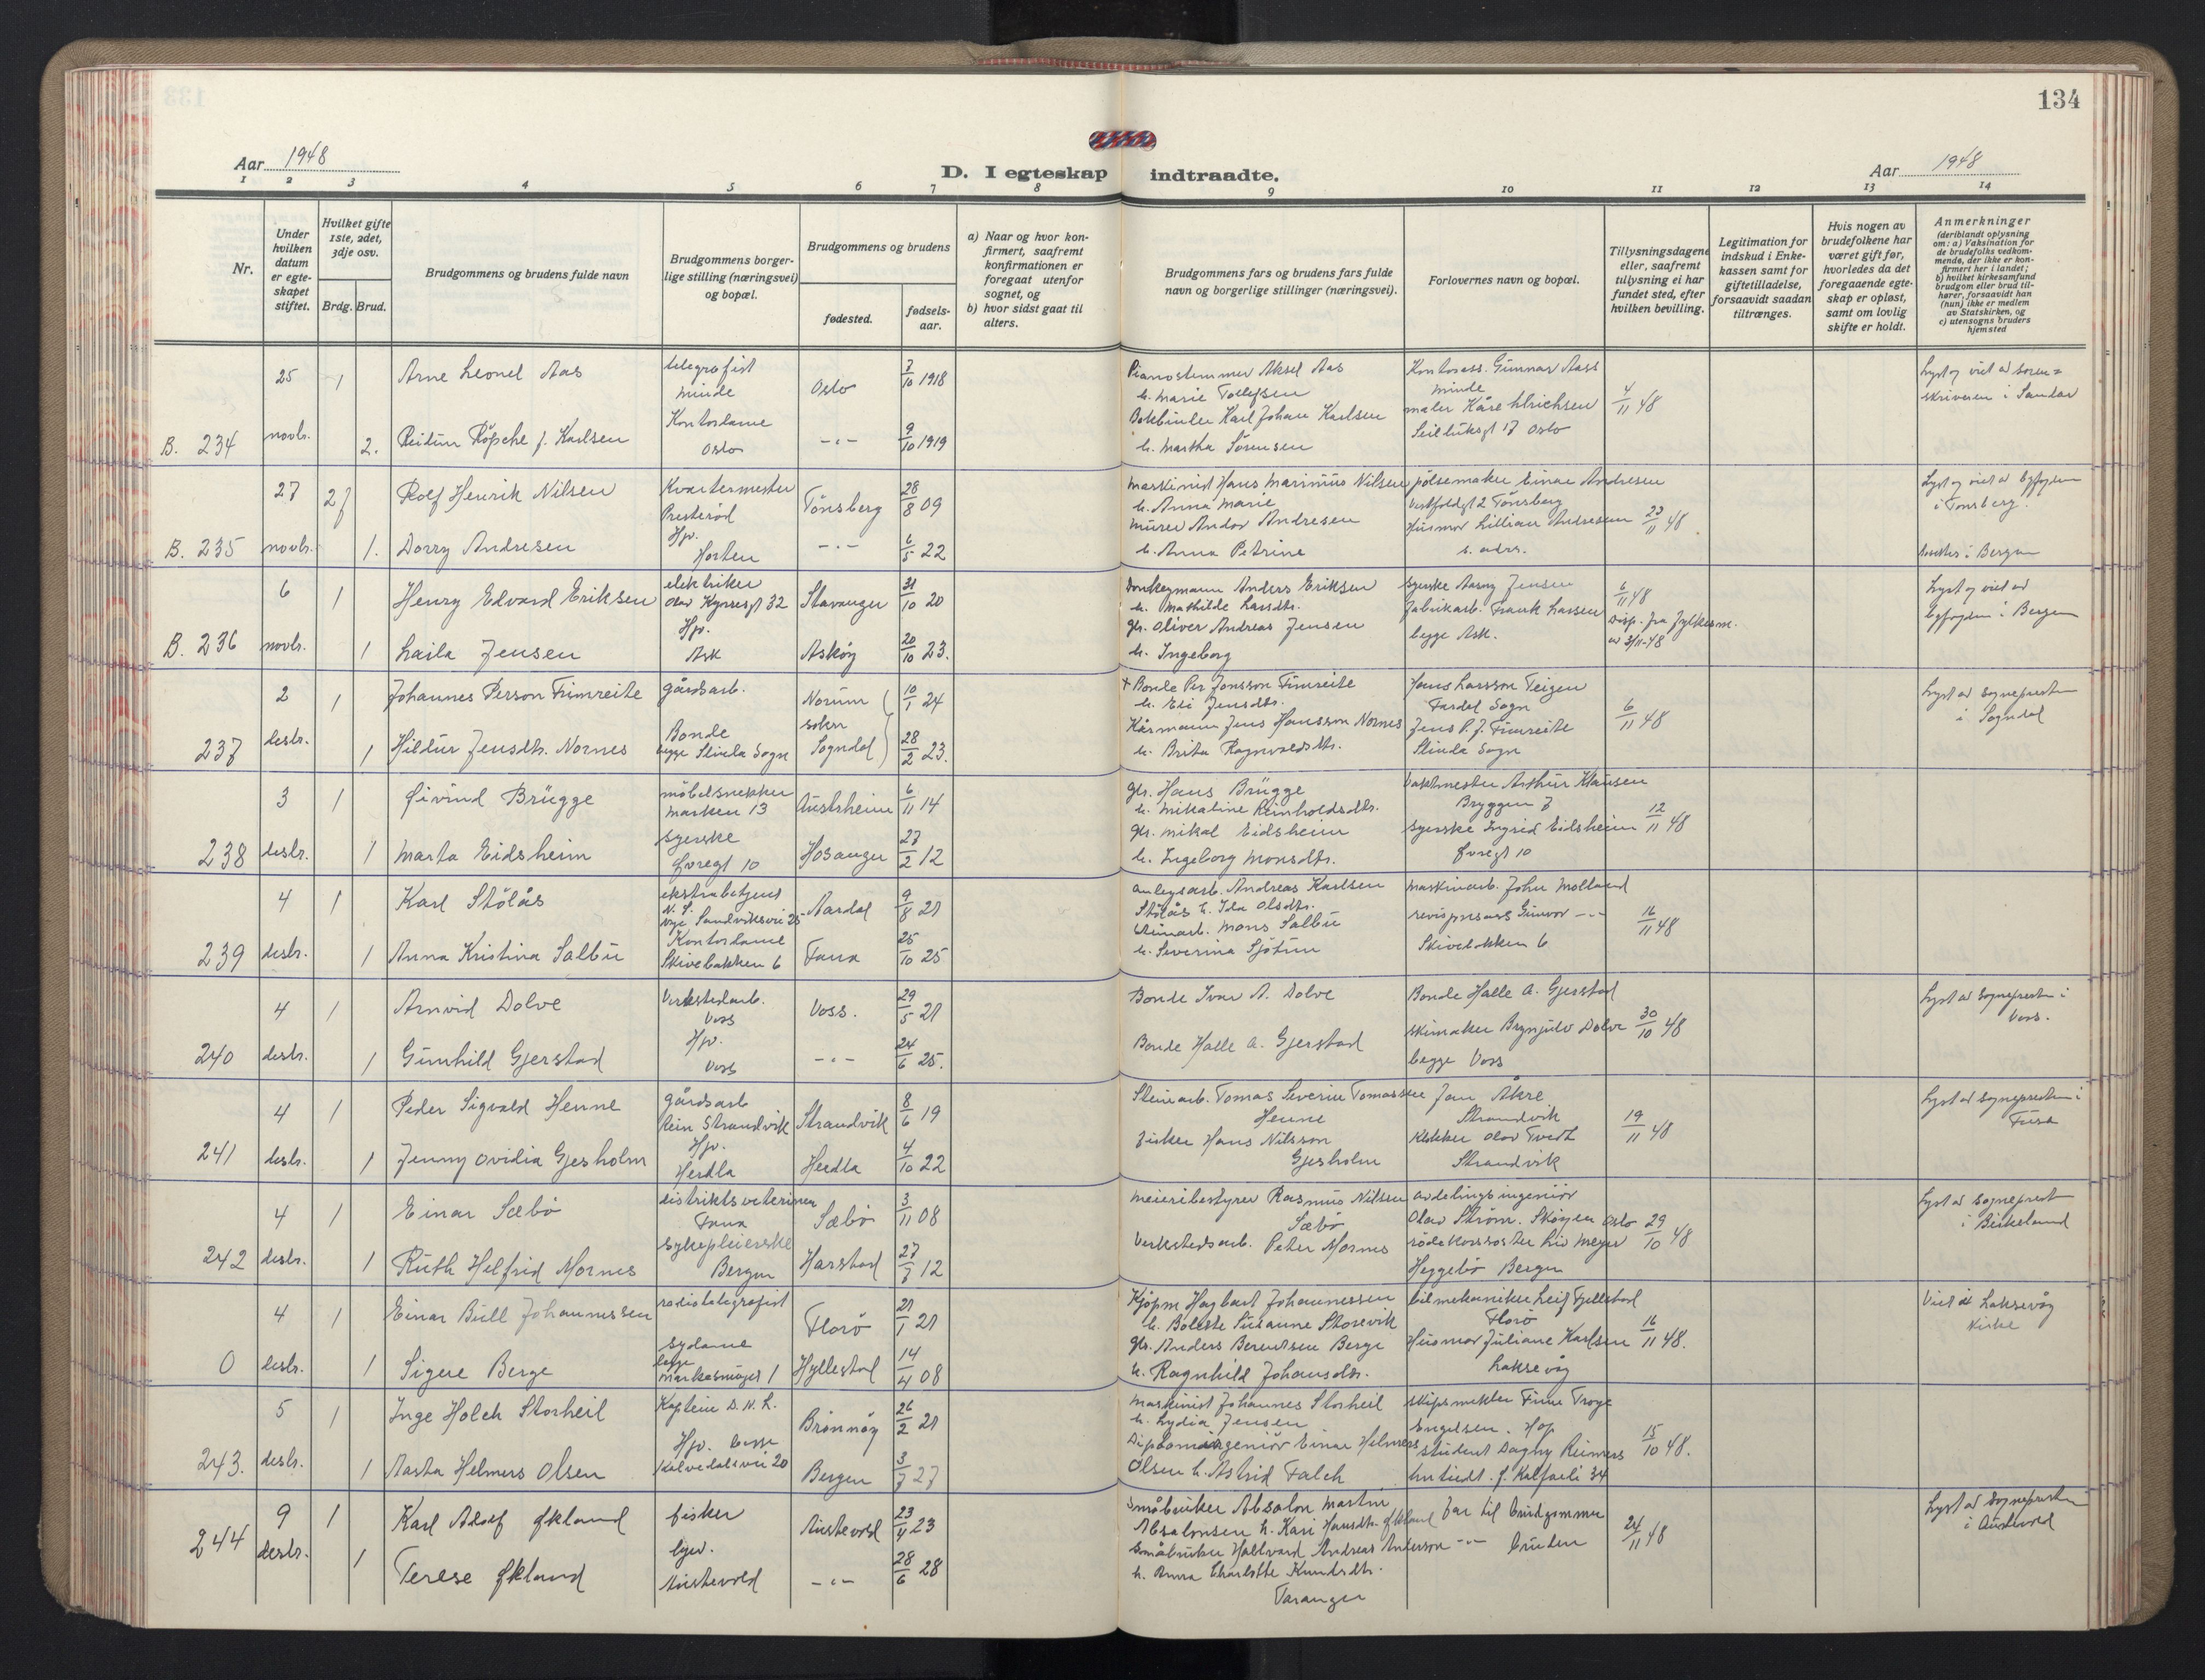 134
Aar 1948
D. I egteskap indtraadte.
Aar 1948
1 2 3 4 5 6 7 8 9 10 11 12 13 14
Nr.
Under hvilken datum er egteskapet stiftet.
Hvilket gifte 1ste, 2det, 3dje osv.
Brdg. Brud.
Brudgommens og brudens fulde navn
Brudgommens borgerlige stilling (næringsvei) og bopæl.
Brudgommens og brudens
fødested.
fødselsaar.
a) Naar og hvor konfirmert, saafremt konfirmationen er foregaat utenfor sognet, og
b) hvor sidst gaat til alters.
Brudgommens fars og brudens fars fulde navn og borgerlige stillinger (næringsvei).
Forlovernes navn og bopæl.
Tillysningsdagene eller, saafremt tilysning ei har fundet sted, efter hvilken bevilling.
Legitimation for indskud i Enkekassen samt for giftetilladelse, forsaavidt saadan tiltrænges.
Hvis nogen av brudefolkene har været gift før, hvorledes da det foregaaende egteskap er opløst, samt om lovlig skifte er holdt.
Anmerkninger (deriblandt oplysning om: a) Vaksination for de brudefolks vedkommende, der ikke er konfirmert her i landet; b) hvilket kirkesamfund brudgom eller brud tilhører, forsaavidt han (hun) ikke er medlem av Statskirken, og c) utensogns bruders hjemsted
B. 234 25 novbr. 1 Arne Leonel Aas telegrafist Minde Oslo 7/10 1918
2. Reidun Röpche f. Karlsen Kontordame Oslo -"- 9/10 1919
Pianostemmer Aksel Aas
h. Marie Tollefsen
Bokbinder Karl Johan Karlsen
h. Martha Sørensen
Kontorass. Gunnar Aass
Minde
maler Kåre Ulrichsen
17 Oslo
4/11 48
Lyst og viet av sorenskriveren i Sandar
B. 235 27 novbr. Rolf Henrik Nilsen Kvartermester Presterød Tönsberg 28/8 09
1. Dorry Andresen Hjv. Horten -"- 6/5 22
Maskinist Hans Marinius Nilsen
h. Anna Marie
Murer Andor Andresen
h. Anna Petrine
pölsemaker Einar Andresen
Vestfoldgt 2 Tönsberg
Husmor Lillian Andresen
s. adrs.
23/11 48
Lyst og viet av byfogden i Tönsberg.
i Bergen
B. 236 6 novbr. 1 Henry Edvard Eriksen elektriker Olav Kyrresgt 32 Stavanger 31/10 20
1 Laila Jensen Hjv. Ask Asköy 20/10 23.
Donkeymann Anders Eriksen
h. Mathilde Larsdtr.
gbr. Oliver Andreas Jensen
h. Ingeborg
syerske Aasny Jensen
fabrikarb. Frank Larsen
begge Ask.
6/11 48
Disp. fra fylkesm. av 3/11-48
Lyst og viet av byfogden i Bergen
237 2 desbr. 1 Johannes Person Fimreite gårdsarb. Norum sokn Sogndal 10/1 24
1 Hildur Jensdtr. Nornes Bonde begge Slinda Sogn 28/2 23.
+ Bonde Per Jonsson Fimreite
h. Eli Jensdtr.
Kårmann Jens Hansson Nornes
h. Brita Ragnvaldsdtr.
Hans Larsson Teigen
Fardal Sogn
Jens P. J. Fimreite
Slinda Sogn
6/11 48
Lyst av Sognepresten i Sogndal
238 3 desbr. 1 Øivind Brügge möbelsnekker Marken 13 Austrheim 6/11 14
1 Marta Eidsheim syerske Øvregt 10 Hosanger 27/2 12
gbr. Hans Brügge
h. Mikaline Reinholdsdtr.
gbr. Mikal Eidsheim
h. Ingeborg Monsdtr.
Vaktmester Arthur Klausen
Bryggen 7
syerske Ingrid Eidsheim
Øvregt 10
12/11 48
239 4 desbr. 1 Karl Stölås ekstrabetjent N.S. Nye Sandviksvei 25 Aardal 9/8 21
1 Anna Kristina Salbu Kontordame Skivebakken 6 Fana 25/10 25
anlegsarb. Andreas Karlsen
Stölås h. Ida Olsdtr.
Mons Salbu
h. Severina Sjötun
maskinarb. John Molland
Gunvor -"-
Skivebakken 6
16/11 48
240 4 desbr. 1 Arnvid Dolve Verkstedarb. Voss Voss. 29/5 21
1 Gunhild Gjerstad Hjv. Voss -"- 24/6 25.
Bonde Ivar A. Dolve
Bonde Halle A. Gjerstad
Bonde Halle A. Gjerstad
skimaker Brynjulv Dolve
begge Voss
30/10 48
Lyst av Sognepresten i Voss.
241 4 desbr. 1 Peder Sigvald Henne gårdsarb Rein Strandvik Strandvik 8/6 19
1 Jenny Ovidia Gjesholm Hjv. Herdla Herdla 4/10 22
Steinarb. Tomas Severin Tomassen
Henne
Fisker Hans Nilsson
Gjesholm
Jan Åkre
Strandvik
Klokker Olav Tvedt
Strandvik
19/11 48
Lyst av sognepresten i Fusa
242 4 desbr. 1 Einar Sæbö distriktsveterinær Fana Sæbö 3/11 08
1 Ruth Helfrid Mornes sykepleierske Bergen Harstad 27/7 12
Meieribestyrer Rasmus Nilsen
Sæbö
Verkstedsarb. Peter Mornes
avdelingsingeniör
Olav Ström. Skøyen Oslo
rödekorssöster Liv Meyer
Heggebö Bergen
29/10 48
Lyst av Sogneprest i Birkeland
0 4 desbr. 1 Einar Bull Johannessen radiotelegrafist Florö 21/1 21
1 Signe Berge sydame begge Markesmuget 1 Hyllestad 14/4 08
Kjöpm Hagbart Johannessen
h. Bolette Susanne Storevik
gbr. Anders Berentsen Berge
h. Ragnhild Johansdtr.
bilmekaniker Leif Fjellstad
Florö
Husmor Juliane Karlsen
Laksevåg
16/11 48.
Viet i Laksevåg Kirke
243. 5 desbr. 1 Inge Holch Storheil Kaptein D.N.L. Brönnöy 26/2 21
1 Aasta Helmers Olsen Hjv. begge Kalvedalsvei 20 Bergen 3/7 27
Maskinist Johannes Storheil
h. Lydia Jensen
Diplomingeniör Einar Helmers
Olsen h. Astrid Falch
skipsmekler Finn Troye
Engelsen. Hop
student Dagny Reimers
Kalfarli 34
15/10 48.
244 9 desbr. 1 Karl Adolf Økland fisker Austevold 23/11 23
1 Terese Økland hjv. Austevold -"- 28/6 28
Småbruker Absalon Martin
Absalonsen h. Kari Hansdtr. Økland
Småbruker Hallvard Andreas Anderson
h. Anna Charlotte Knudsdtr.
Taranger
Far til brudgommen
-"- bruden
24/11 48
Lyst av Sognepresten i Austevold